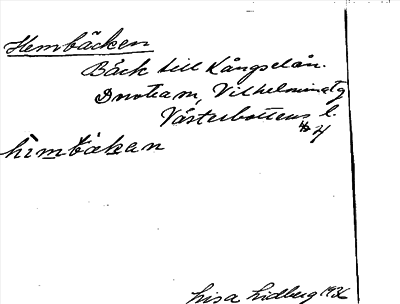 Hembäcken
Bäck till Kångselån.
Dnoteam, Vilhelmina tg
Västerbottens l.
hìmbäkan
Lisa Lidberg 1936